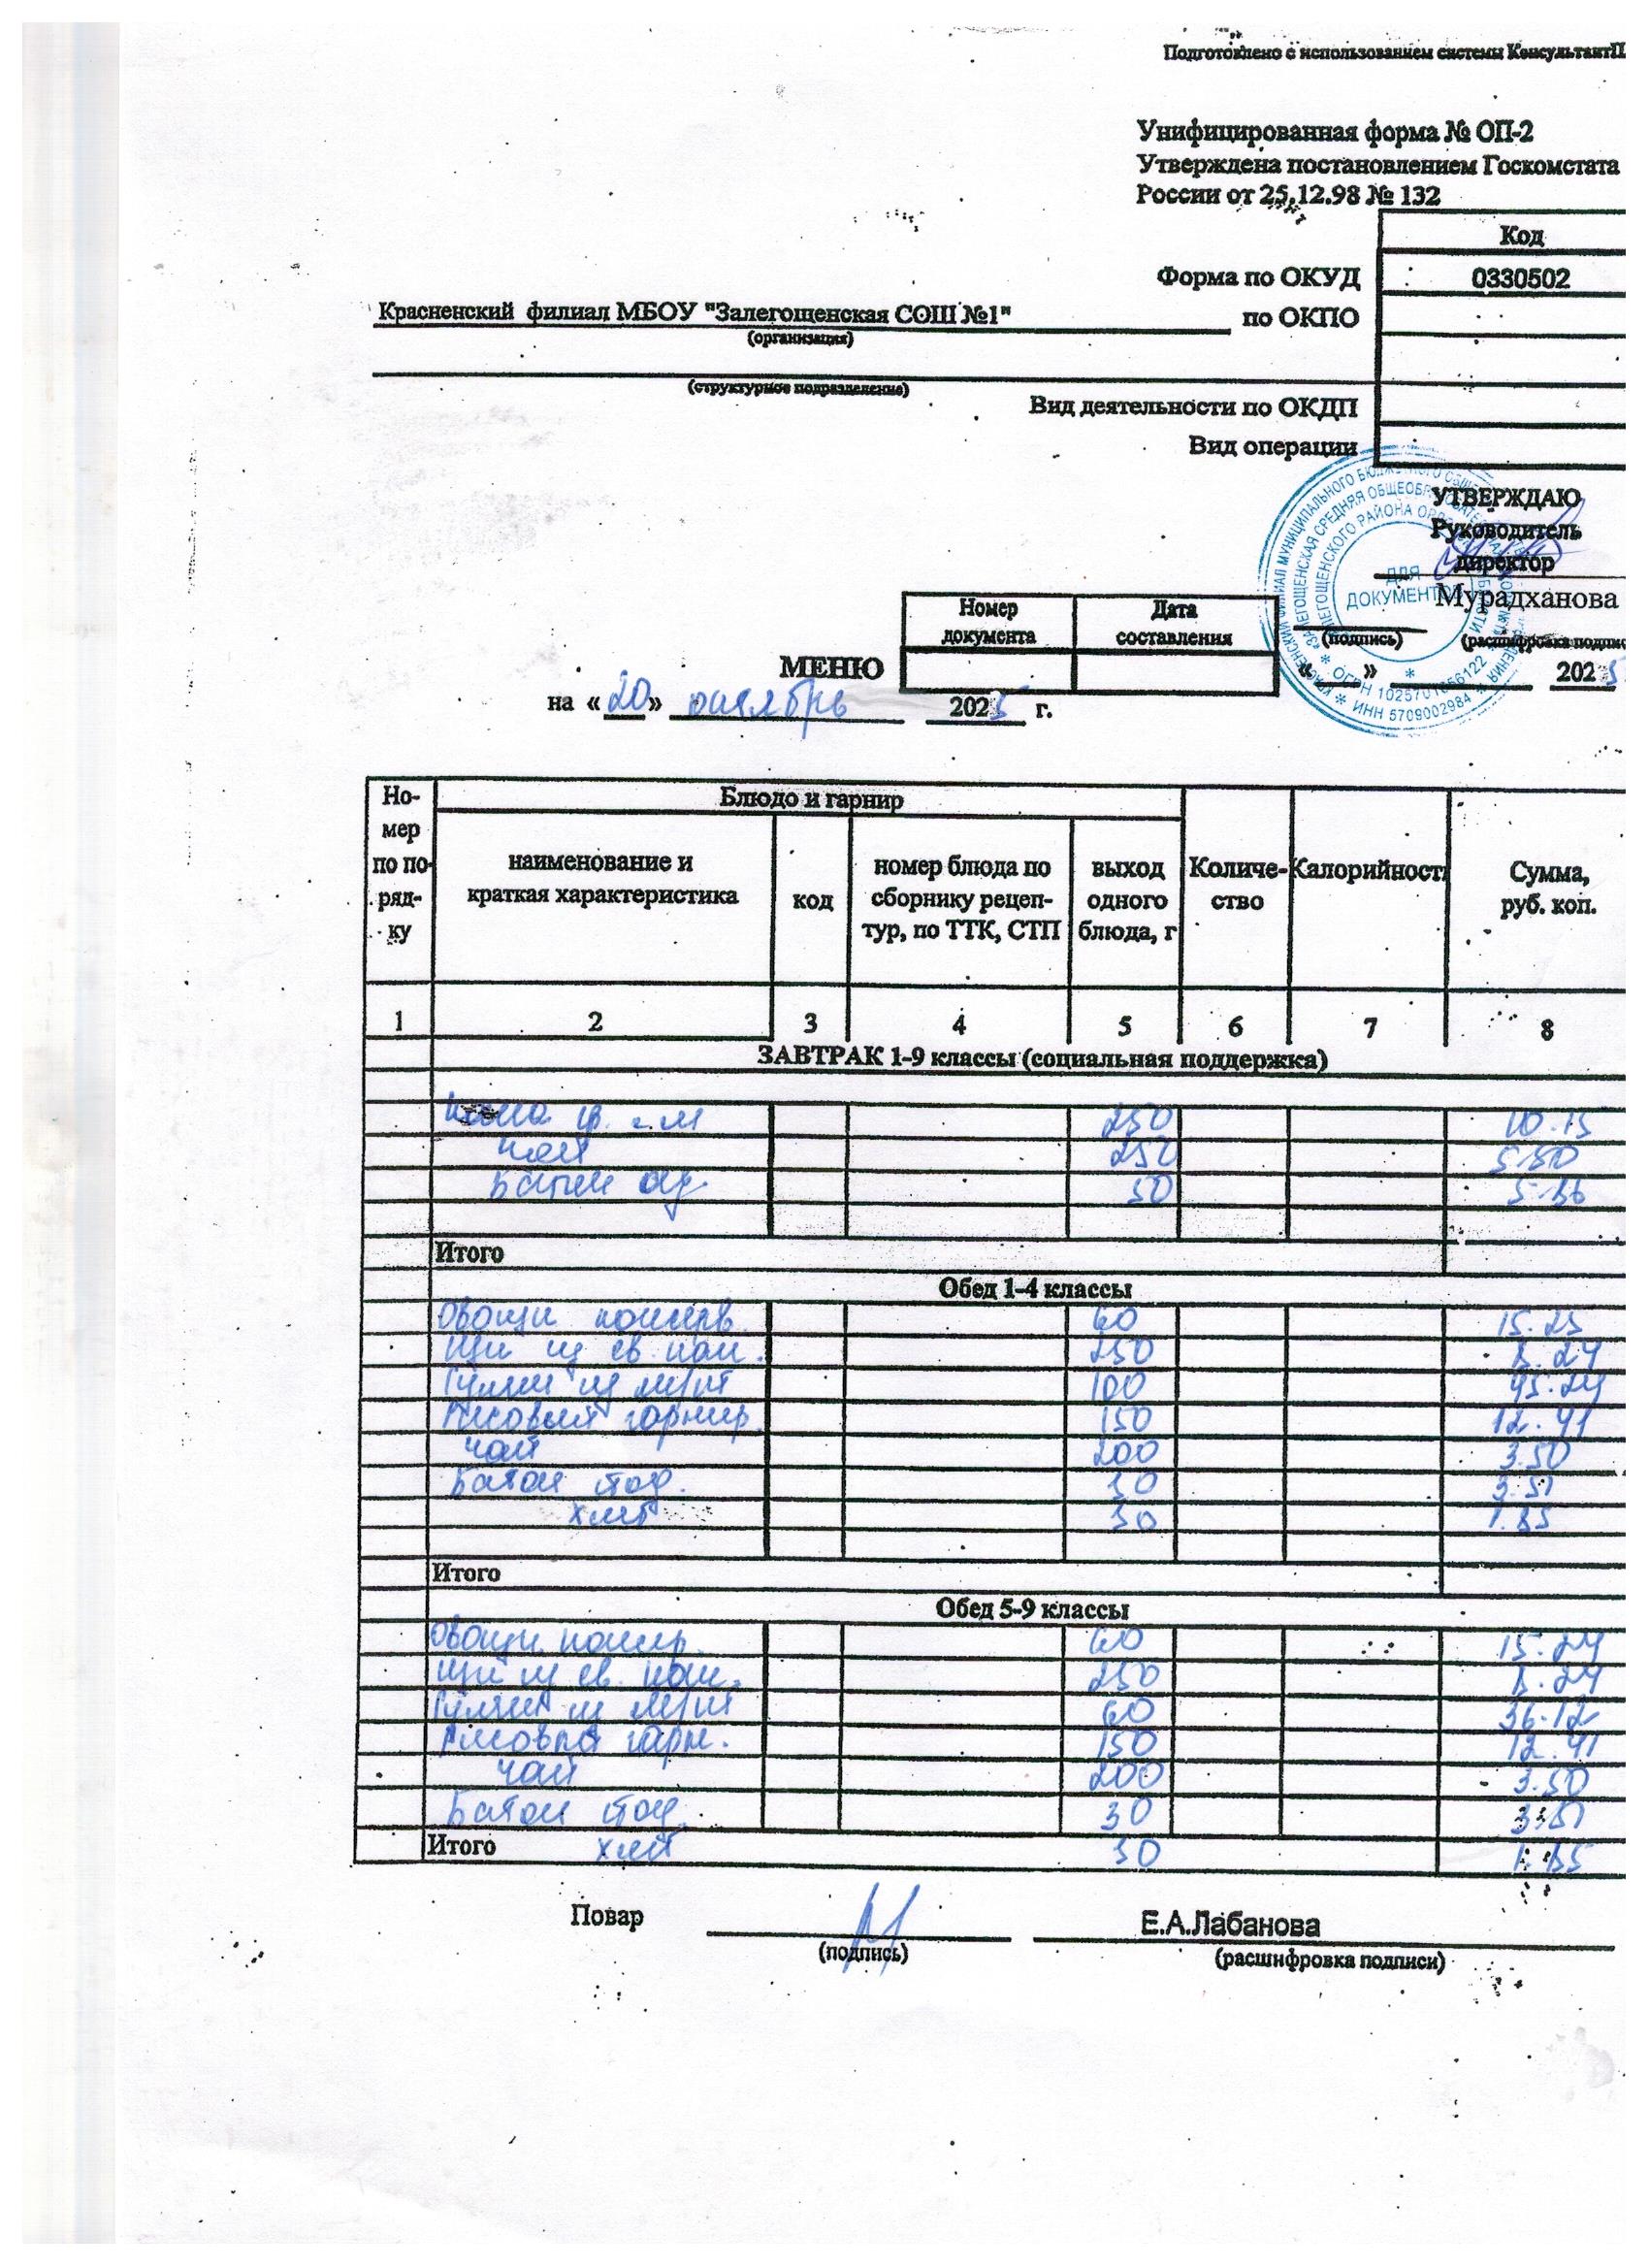 Подготовлено с использованием системы КонсультантП
Унифицированная форма № ОП-2
Утверждена постановлением Госкомстата
России от 25.12.98 № 132
Код
Форма по ОКУД 0330502
Красненский филиал МБОУ "Залегощенская СОШ №1" по ОКПО
(организация)
(структурное подразделение)
Вид деятельности по ОКДП
Вид операции
УТВЕРЖДАЮ
Руководитель
директор
ДЛЯ
ДОКУМЕНТОВ
Мурадханова
(подпись) (расшифровка подпис
Номер документа Дата составления
МЕНЮ
« » 202
на «20» 202 г.
ОГРН 1025701656122
ИНН 5709002984
Но-
мер
по по-
ряд-
ку
Блюдо и гарнир
наименование и
краткая характеристика
код
номер блюда по
сборнику рецеп-
тур, по ТТК, СТП
выход
одного
блюда, г
Количе-
ство
Калорийност
Сумма,
руб. коп.
1 2 3 4 5 6 7 8
ЗАВТРАК 1-9 классы (социальная поддержка)
250 10.15
чай
Батон 50
Итого
Обед 1-4 классы
Овощи консерв 60 15.25
Щи из св. кап. 250 8.24
Гуляш из 100 45.24
Рисовый гарнир 150 12.41
чай 200 3.50
Батон йод. 30 3.51
хлеб 30 1.85
Итого
Обед 5-9 классы
Овощи консер. 60 15.24
Щи из св. кап. 250 8.24
Гуляш из 60 36.12
Рисовый гарн. 150 12.41
чай 200 3.50
Батон йод. 30 3.51
Итого хлеб 30 1.85
Повар Е.А.Лабанова
(подпись) (расшифровка подписи)